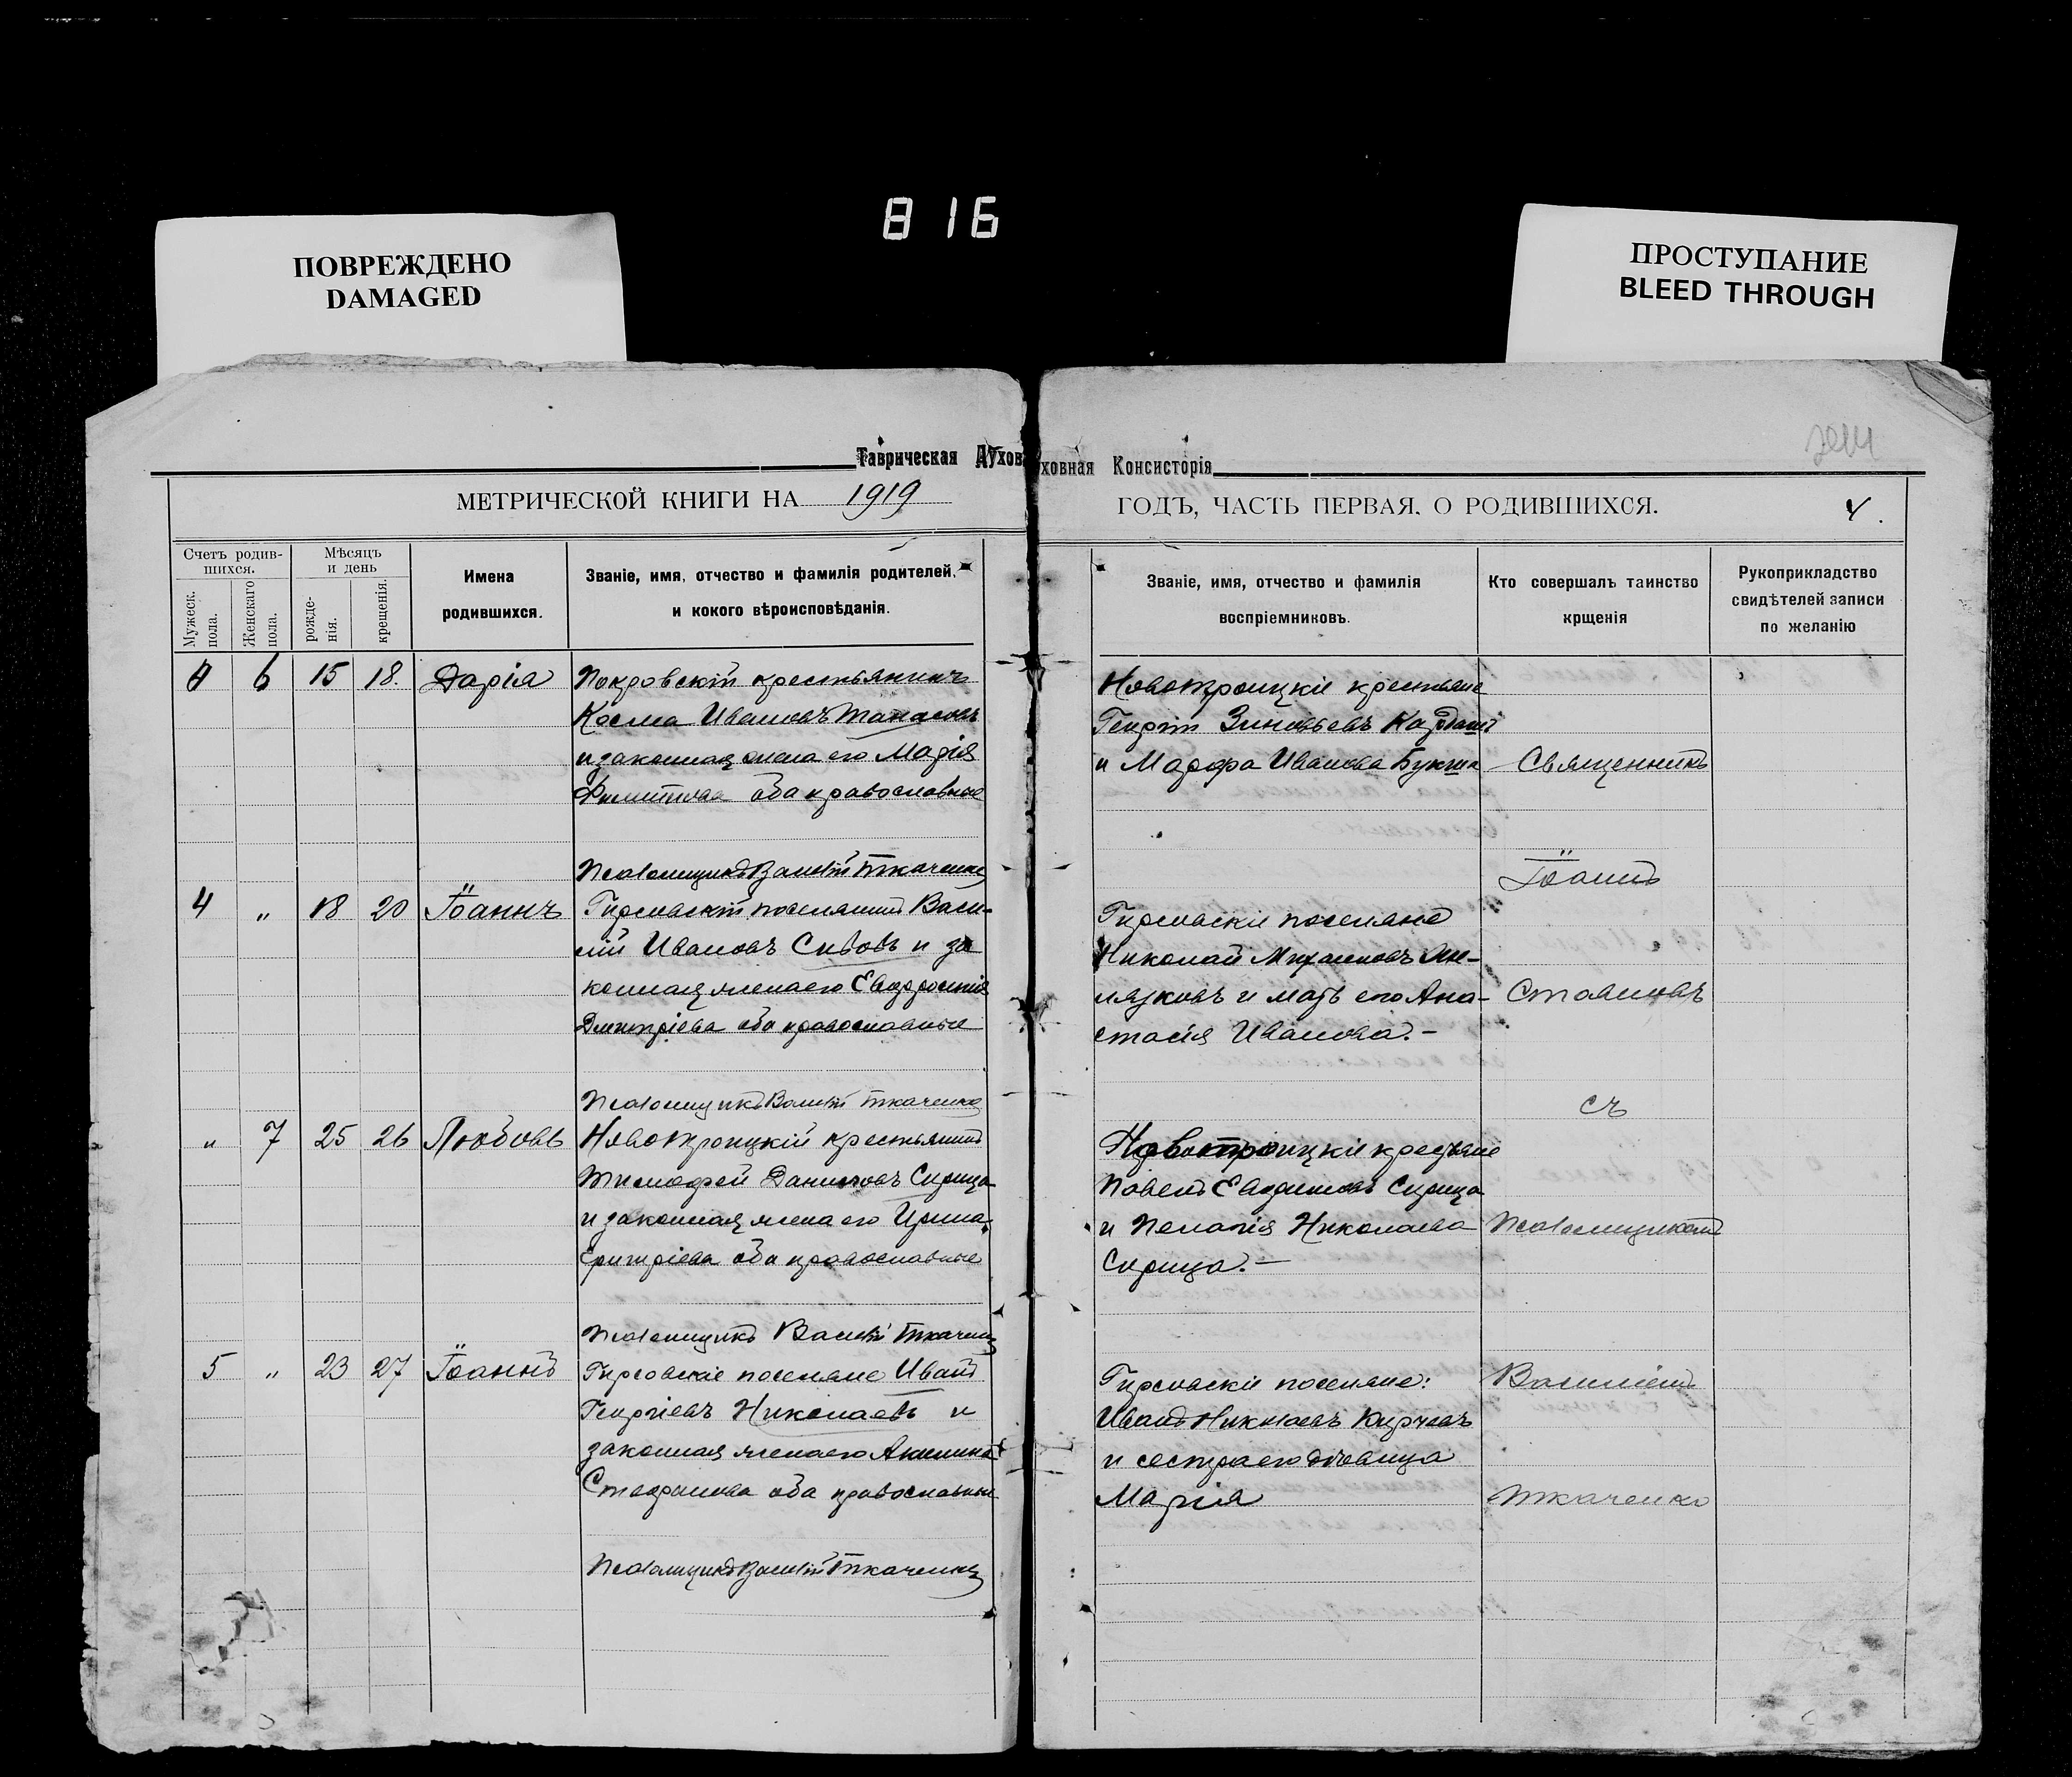 816
ПОВРЕЖДЕНО
DAMAGED
ПРОСТУПАНИЕ
BLEED THROUGH
Таврическая Духов
ховная Консисторія
МЕТРИЧЕСКОЙ КНИГИ НА 1919
ГОДЪ, ЧАСТЬ ПЕРВАЯ, О РОДИВШИХСЯ.
4.
Счетъ родив-
шихся.
Мужеск.
пола.
Женскаго
пола.
Мѣсяцъ
и день
рожде-
нія.
крещенія.
Имена
родившихся.
Званіе, имя, отчество и фамилія родителей,
и кокого вѣроисповѣданія.
Званіе, имя, отчество и фамилія
воспріемниковъ.
Кто совершалъ таинство
крщенія
Рукоприкладство
свидѣтелей записи
по желанію
6 15 18. Дарія
Покровскій крестьянинъ
Косма Ивановъ Танасовъ
и законная жена его Марія
оба православные
Псаломщикъ Василій Ткаченко
Новотроицкіе крестьяне
Георгій Зиновьевъ
и Марфа Иванова Букша
4 " 18 20 Іоаннъ
Гирсовскій поселянинъ Васи-
лій Ивановъ Сивовъ и за
конная жена его Евфросинія
Димитріева оба православные
Псаломщикъ Василій Ткаченко
Гирсовскіе поселяне
Николай Михаиловъ
и мать его Ана-
стасія Иванова.-
" 7 25 26 Любовь
Новотроицкій крестьянинъ
Тимофей Даниловъ Сирица
и законная жена его Ирина
оба православные
Псаломщикъ Василій Ткаченко
Новотроицкіе крестьяне
Павелъ Сирица
и Пелагія Николаева
Сирица.-
5 " 23 27 Іоаннъ
Гирсовскіе поселяне Иванъ
Георгіевъ Николаевъ и
законная жена его Акилина
Стефанова оба православные
Псаломщикъ Василій Ткаченко
Гирсовскіе поселяне:
Иванъ Николаевъ Кирчевъ
и сестра его дѣвица
Марія
Священникъ
Іоаннъ
Стояновъ
съ
Псаломщикомъ
Василіемъ
Ткаченко